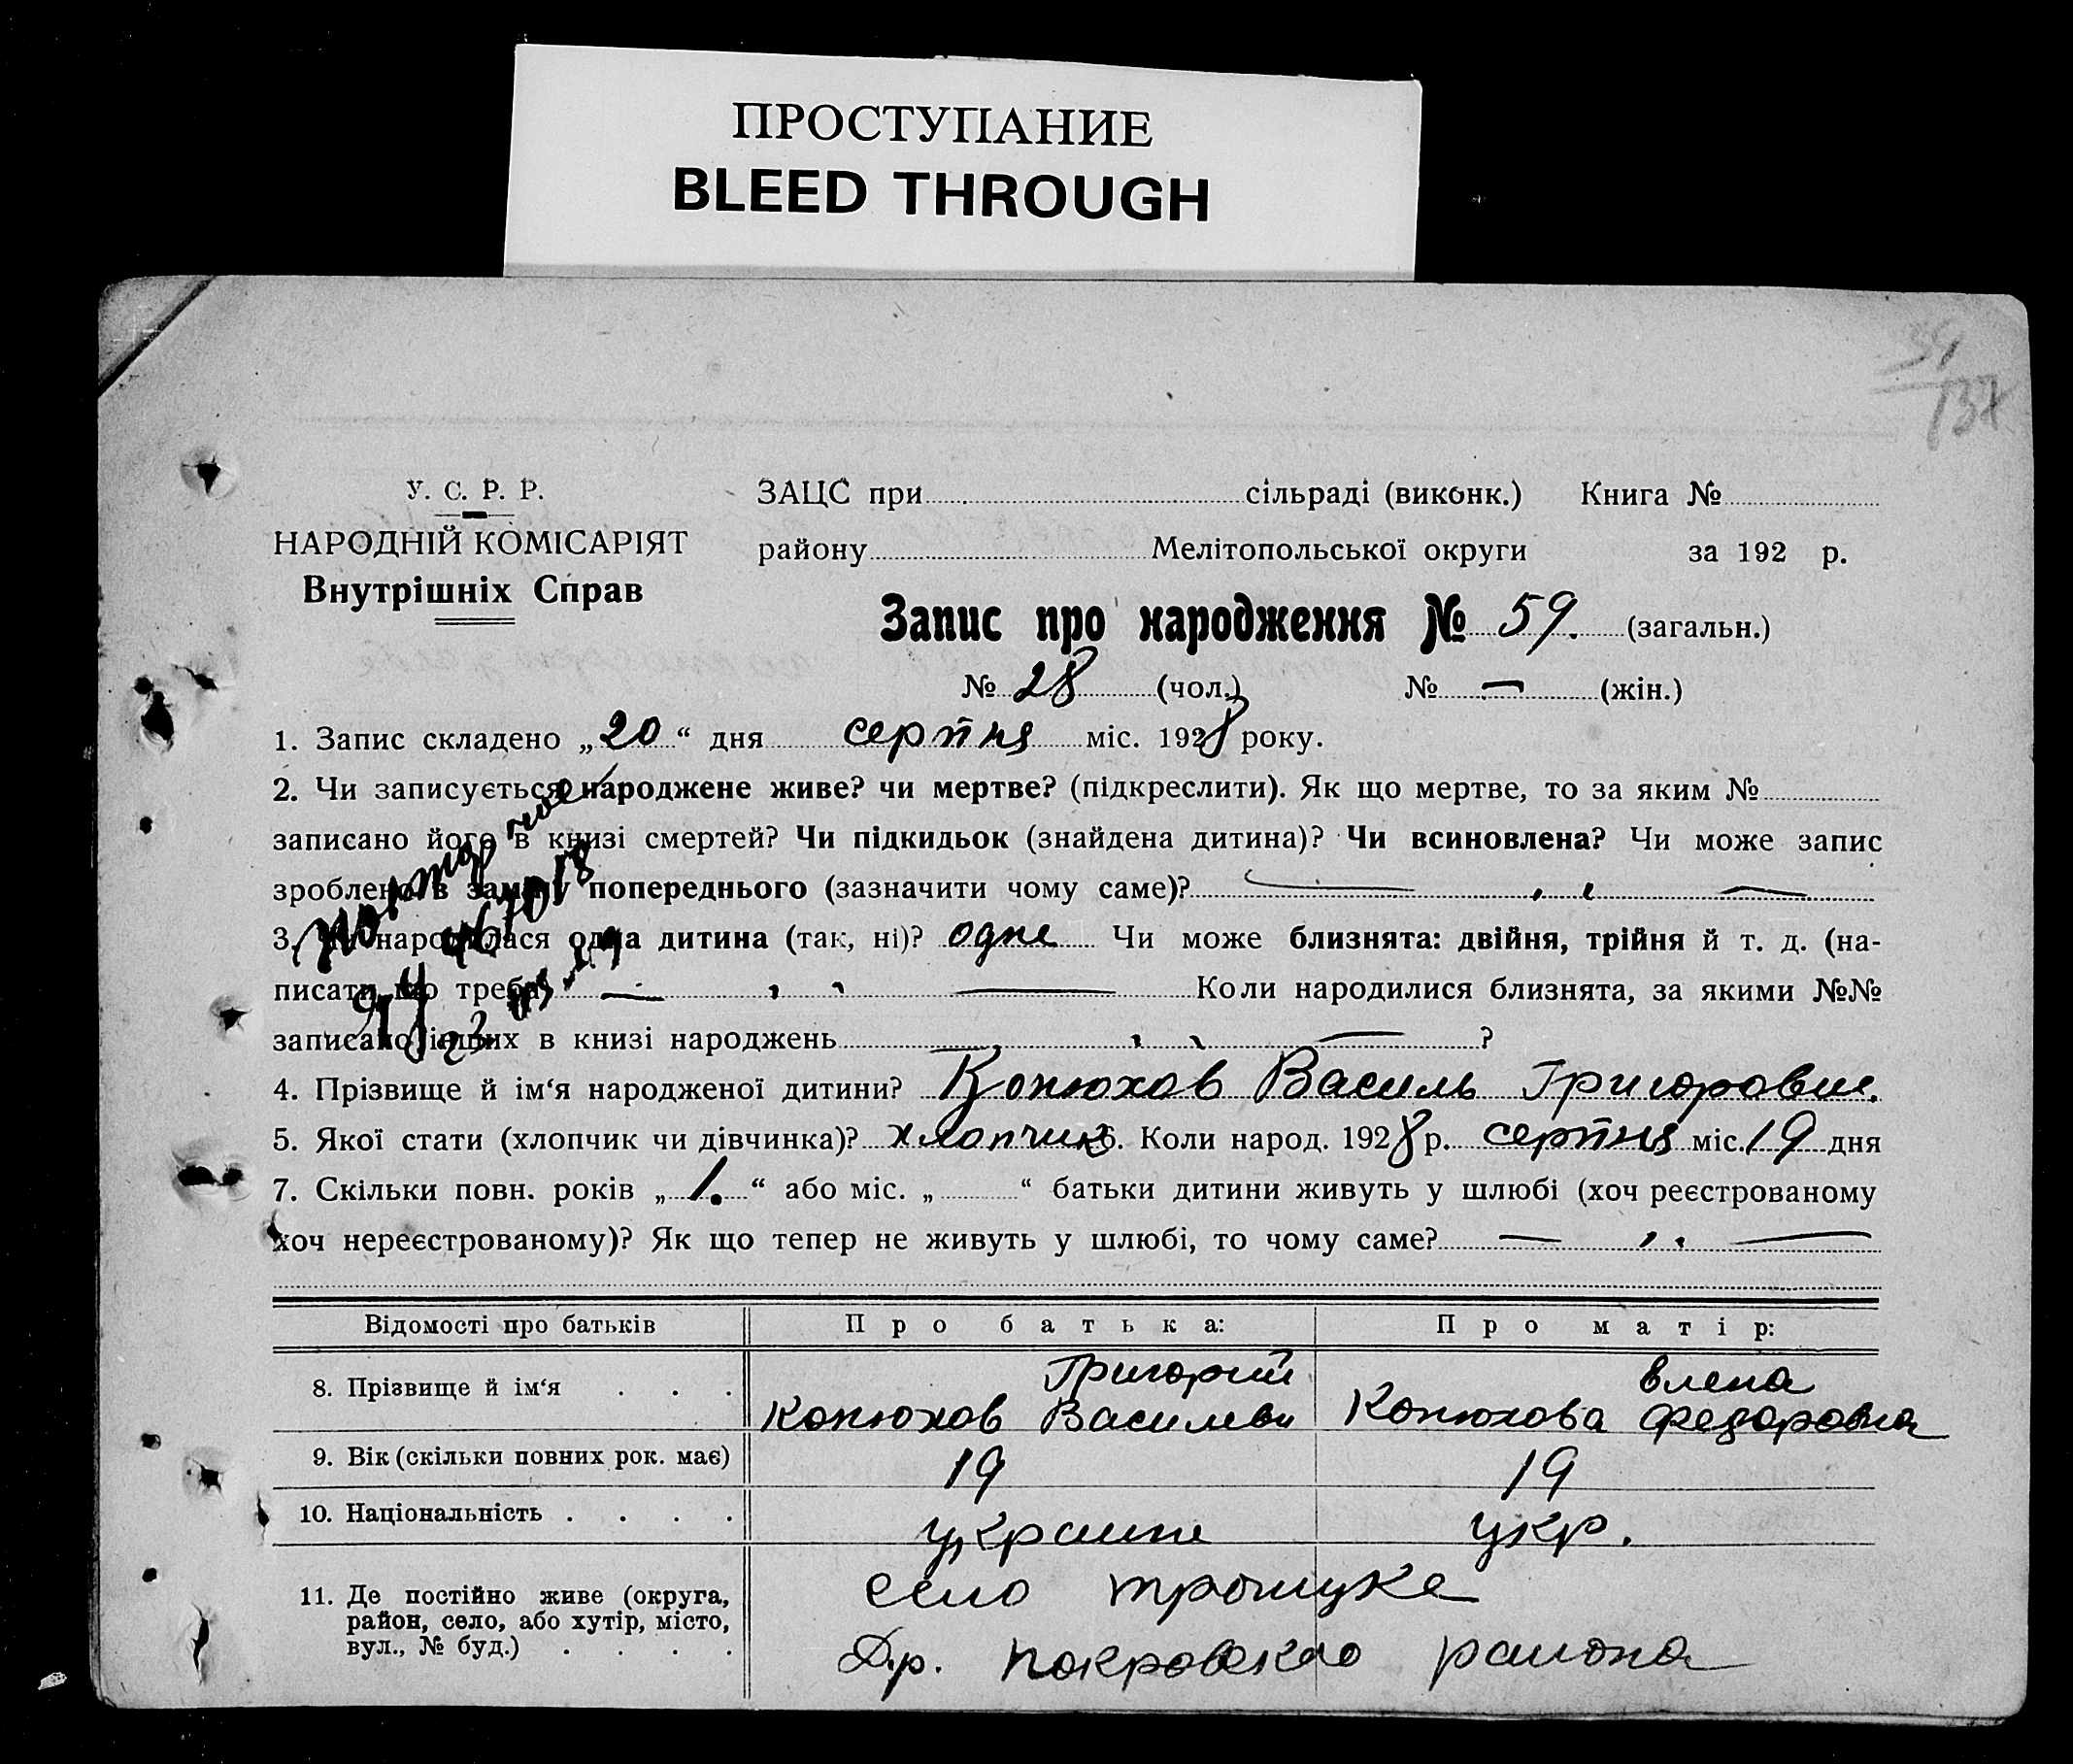 ПРОСТУПАНИЕ
BLEED THROUGH
59
137
У. С. Р. Р.
НАРОДНІЙ КОМІСАРІЯТ
Внутрішніх Справ
ЗАЦС при сільраді (виконк.) Книга №
району Мелітопольської округи за 192 р.
Запис про народження № 59. (загальн.)
№ 28 (чол.) № — (жін.)
1. Запис складено „20“ дня серпня міс. 1928 року.
2. Чи записується народжене живе? чи мертве? (підкреслити). Як що мертве, то за яким №
записано його в книзі смертей? Чи підкидьок (знайдена дитина)? Чи всиновлена? Чи може запис
зроблено в заміну попереднього (зазначити чому саме)? — „ —
3. Чи народилася одна дитина (так, ні)? одне Чи може близнята: двійня, трійня й т. д. (на-
писати що треба) — „ — Коли народилися близнята, за якими №№
записано інших в книзі народжень „ — ?
4. Прізвище й ім‘я народженої дитини? Конюхов Василь Григорович.
5. Якої стати (хлопчик чи дівчинка)? хлопчик 6. Коли народ. 1928 р. серпня міс. 19 дня
7. Скільки повн. років „1.“ або міс. „ “ батьки дитини живуть у шлюбі (хоч реєстрованому
хоч нереєстрованому)? Як що тепер не живуть у шлюбі, то чому саме? — „ —
Відомості про батьків Про батька: Про матір:
8. Прізвище й ім‘я . . . Конюхов Григорий Васильви Конюхова Елена Федоровна
9. Вік (скільки повних рок. має) 19 19
10. Національність . . . . украине укр.
11. Де постійно живе (округа,
район, село, або хутір, місто,
вул., № буд.) . . . .
село троицке
Др. покровскаго района